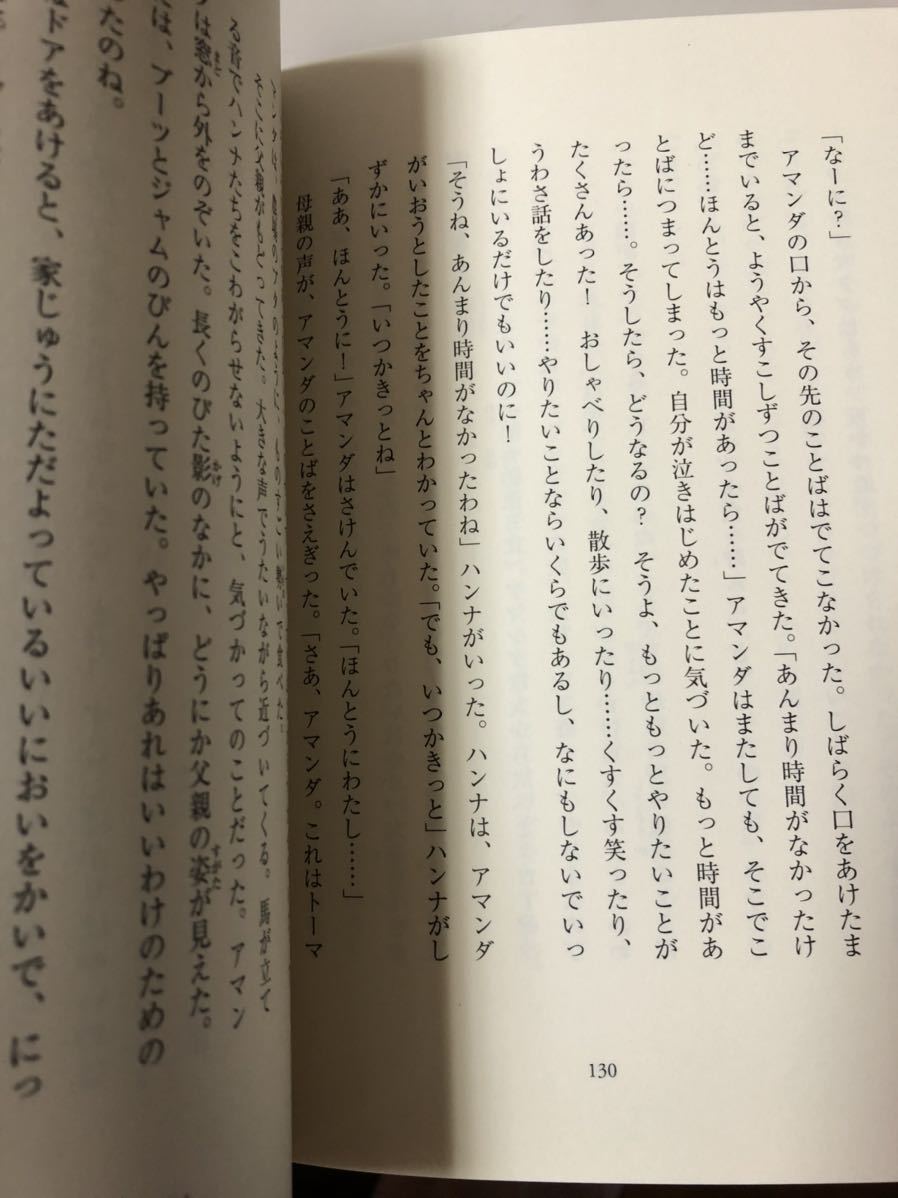 「なーに？」
アマンダの口から、その先のことばはでてこなかった。しばらく口をあけたま
までいると、ようやくすこしずつことばがでてきた。「あんまり時間がなかったけ
ど……ほんとうはもっと時間があったら……」アマンダはまたしても、そこでこ
とばにつまってしまった。自分が泣きはじめたことに気づいた。もっと時間があ
ったら……。そうしたら、どうなるの？　そうよ、もっともっとやりたいことが
たくさんあった！　おしゃべりしたり、散歩にいったり……くすくす笑ったり、
うわさ話をしたり……やりたいことならいくらでもあるし、なにもしないでいっ
しょにいるだけでもいいのに！
「そうね、あんまり時間がなかったわね」ハンナがいった。ハンナは、アマンダ
がいおうとしたことをちゃんとわかっていた。「でも、いつかきっと」ハンナがし
ずかにいった。「いつかきっとね」
「ああ、ほんとうに！」アマンダはさけんでいた。「ほんとうにわたし……」
母親の声が、アマンダのことばをさえぎった。「さあ、アマンダ。これはトーマ
130
そこに父親がもどってきた。大きな声でうたいながら近づいてくる。馬が立て
る音でハンナたちをこわがらせないようにと、気づかってのことだった。アマン
は窓から外をのぞいた。長くのびた影のなかに、どうにか父親の姿が見えた。
は、ブーツとジャムのびんを持っていた。やっぱりあれはいいわけのための
たのね。
ドアをあけると、家じゅうにただよっているいいにおいをかいで、にっ